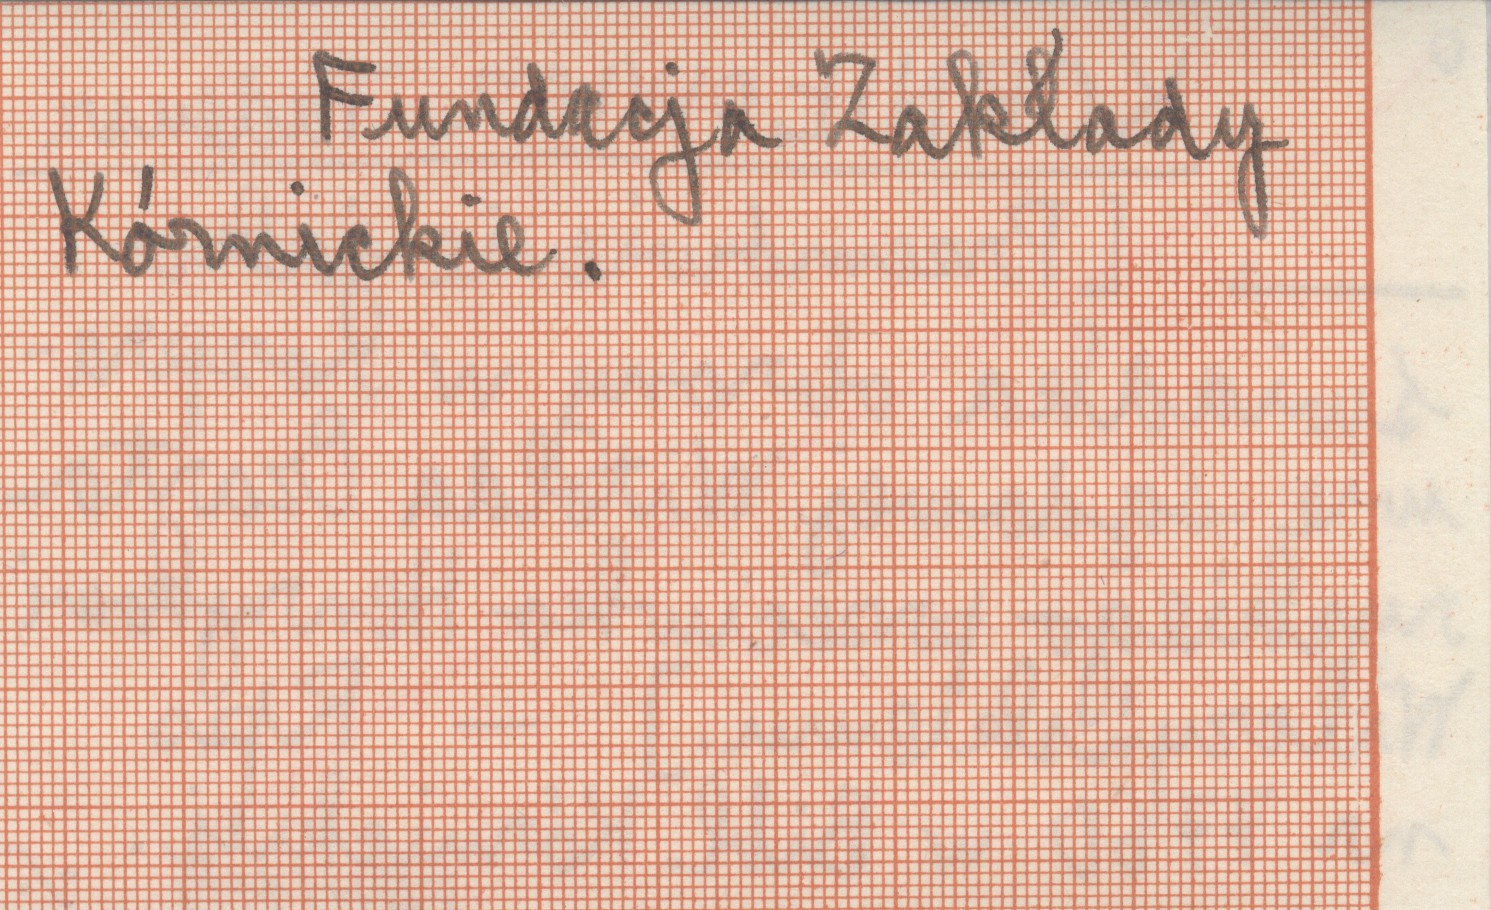 Fundacja Zakłady
Kórnickie.